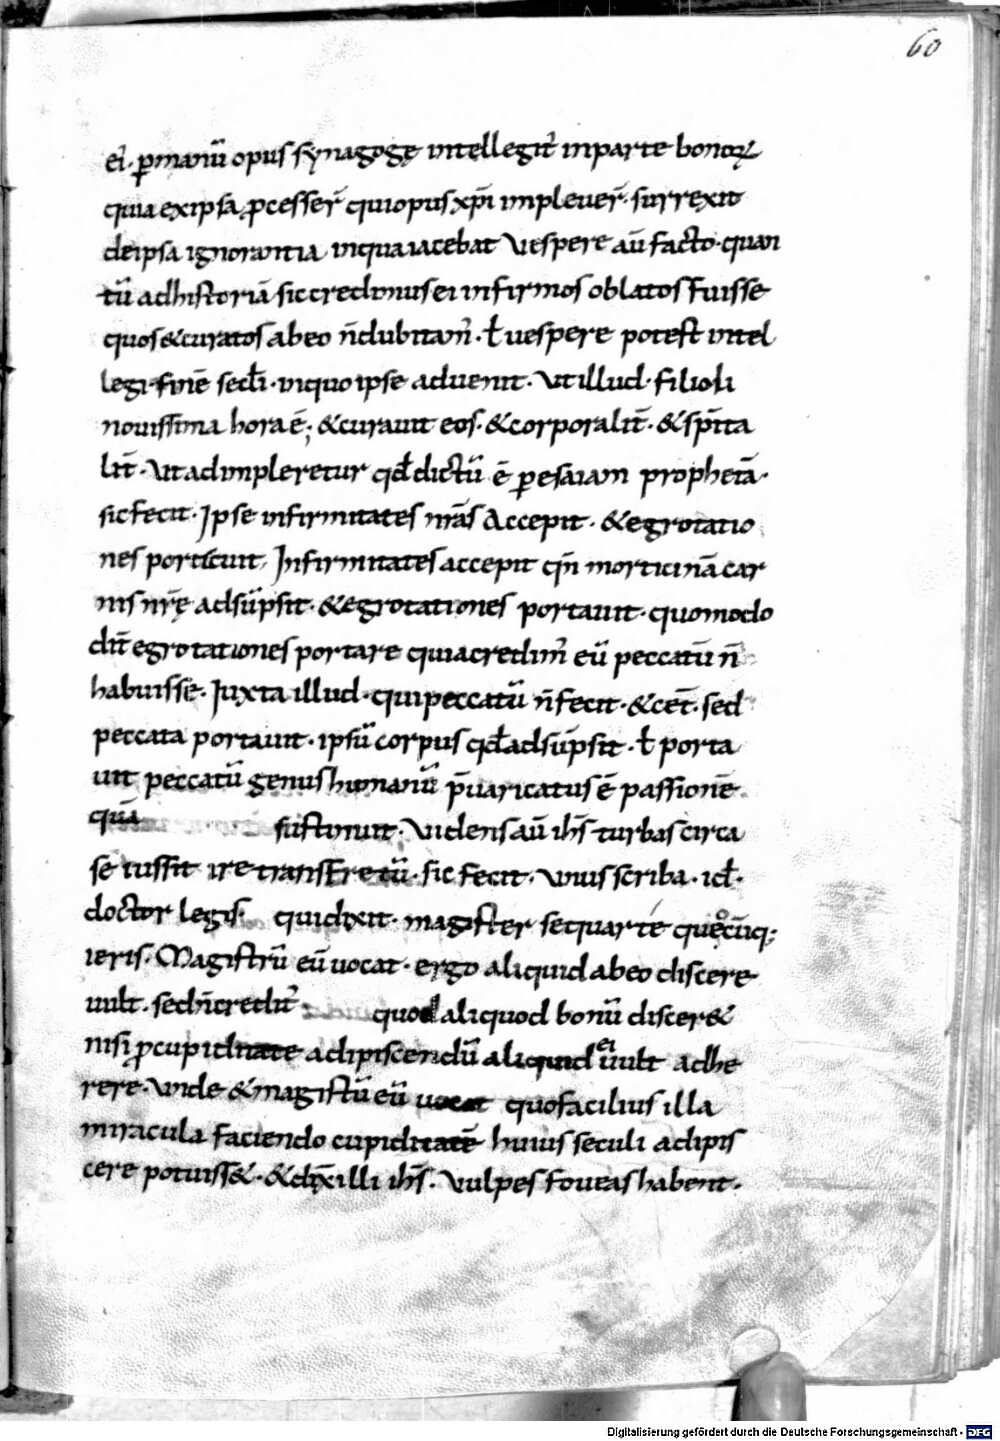 60
ei᷒. ꝑmanū opus synagogę intellegit᷒ inparte bonoꝝ
quia exipsa ꝓcesser̄ quiopus xp̄i impleuer̄. surrexit
deipsa ignorantia inquaiacebat Vespere aū facto. quan
tū adhistoriā siccredimusei infirmos oblatos fuisse
quos&curatos abeo n̄dubitam̄. ł uespere potest intel
legi. finē secłi. inquoipse aduenit. Vt illud. filioli
nouissima hora ē; &curauit eos. &corporalit̄. &sp̄ita
lit̄. Vtadimpleretur qđdictū ē ꝑesaiam prophetā.
sicfecit. Ipse infirmitates nr̄as Accepit. &egrotatio
nes portauit. Infirmitates accepit qn̄ morticinā car
nis nr̄ę adsūpsit. &egrotationes portauit. quomodo
dn̄r egrotationes portare quiacredim᷒ eū peccatū n̄
habuisse. Iuxta illud. quipeccatū n̄fecit. &cet̄. sed
peccata portauit. ipsū corpus qđadsūpsit. ł porta
uit peccatū genus humanū p̄uaricatus ē passionē
quā sustinuit. Videns aū ih̄s turbas circa
se iussit ire transfretū. sic fecit. Vnus scriba. id.
doctor legis. quidixit. magister sequar te quocūq;
ieris. Magistrū eū uocat. ergo aliquid abeo discere
uult. sedn̄credit᷒ quod aliquod bonū discer&
nisi ꝓcupiditate adipiscendū aliquid ei uult adhe
rere. Vnde &magistrū eū uocat quofacilius illa
miracula faciendo cupiditatē huius seculi adipis
cere potuiss&. &dix̄ illi ih̄s. Vulpes foueas habent.
Digitalisierung gefördert durch die Deutsche Forschungsgemeinschaft - DFG